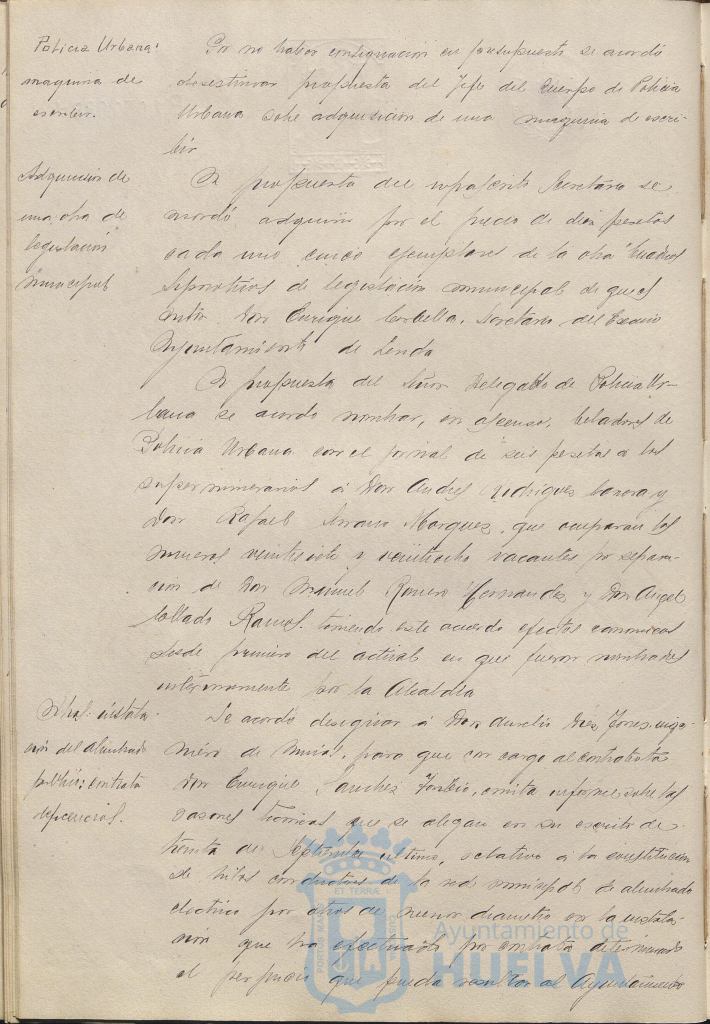 Policia Urbana:
maquina de
escribir.
Por no haber consignación en presupuesto se acordó
desestimar propuesta del Jefe del Cuerpo de Policia
Urbana sobre adquisición de una maquina de escri-
bir
Adquisición de
una obra de
legislación
municipal
A propuesta del infrascrito Secretario se
acordó adquirir por el precio de diez pesetas
cada uno cinco ejemplares de la obra Cuadros
Sinopticos de legislación municipal de que es
autor Don Enrique Corbella, Secretario del Excmo
Ayuntamiento de Lerida
A propuesta del Señor Delegado de Policia Ur-
bana se acordó nombrar, en ascenso, Celadores de
Policia Urbana con el jornal de seis pesetas a los
supernumerarios a Don Andres Rodriguez y
Don Rafael Marquez, que ocuparan los
numeros veintisiete y veintiocho vacantes por separa-
ción de Don Manuel Romero Hernandez y Don Angel
Collado Ramos teniendo este acuerdo efectos economicos
desde primero del actual en que fueron nombrados
interinamente por la Alcaldia
instala-
ción del alumbrado
publico: contrata
Se acordó designar a Don Aurelio Diez Torres, inge-
niero de minas, para que con cargo al contratista
Don Enrique Sanchez Toribio, emita informe sobre las
razones tecnicas que se alegan en su escrito de
treinta de Septiembre ultimo, relativo a la sustitución
de hilos conductores de la red municipal de alumbrado
electrico por otros de menor diametro en la instala-
ción que ha efectuado por contrata determinando
el perjuicio que pueda resultar al Ayuntamiento
Ayuntamiento de
HUELVA